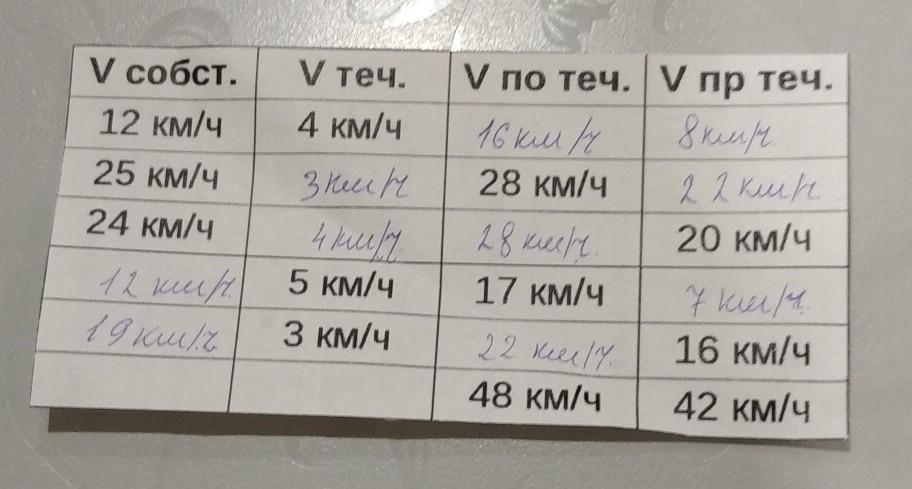 V собст. V теч. V по теч. V пр теч.
12 км/ч 4 км/ч 16 км/ч 8 км/ч.
25 км/ч 3 км/ч 28 км/ч 22 км/ч.
24 км/ч 4 км/ч. 28 км/ч. 20 км/ч
12 км/ч. 5 км/ч 17 км/ч 7 км/ч.
19 км/ч 3 км/ч 22 км/ч. 16 км/ч
48 км/ч 42 км/ч